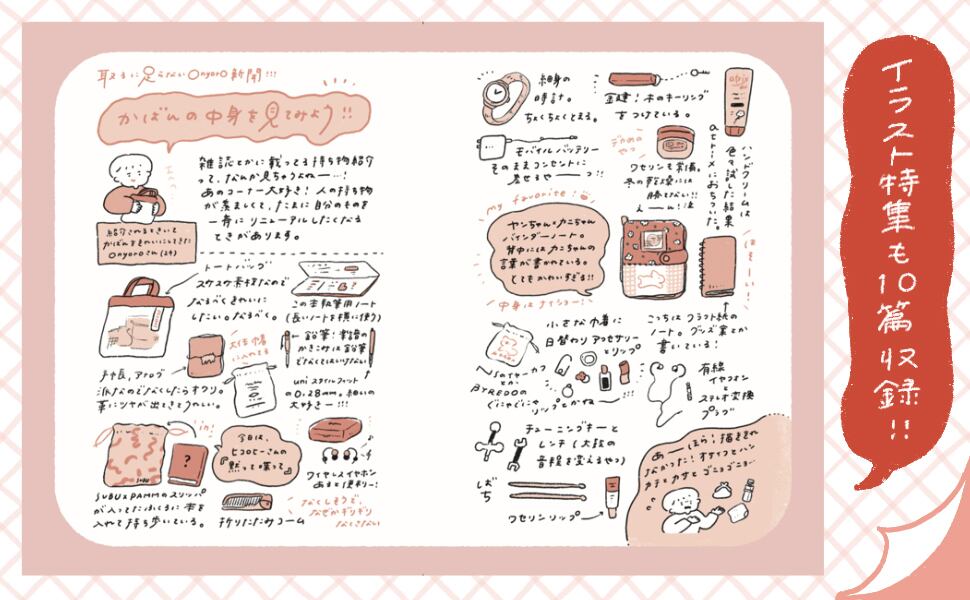 取るに足らないonyoro新聞!!!
かばんの中身を見てみよう!!
雑誌とかに載ってる持ち物紹介
って、なんか見ちゃうよね〜…!
あのコーナー大好き! 人の持ち物
が羨ましくて、たまに自分のものを
一斉にリニューアルしたくなる
ときがあります。
紹介されるときいて
かばんをきれいにしてきた
onyoroさん(24)
トートバッグ
スケスケ素材なので
なるべくきれいに
したい。なるべく。
この本執筆用ノート
(長いノートを横に使う)
手帳、アナログ
派なのでなくしたらオワリ。
革にツヤが出てきてうれしい。
大体巾着
に入れてる
鉛筆! 楽譜の
かきこみは鉛筆
でなくてはいけない
uni スタイルフィット
の0.28mm。細いの
大好き〜!!!
in!
SUBU×PAMMのスリッパ
が入ってたふくろに本を
入れて持ち歩いている。
今日は、
ヒコロヒーさんの
『黙って喋って』
折りたたみコーム
ワイヤレスイヤホン
あると便利!
なくしそうで、
なぜかギリギリ
なくさない
細身の
時計。
ちょくちょくとまる。
金建! 木のキーリング
をつけている。
モバイルバッテリー
そのままコンセントに
差せるや〜〜っ!!
でかめの
やつ
ワセリンも常備。
冬の乾燥には
勝てない!!
atrix
ハンドクリームは
色々試した結果
atrixにおちついた。
my favorite!
ヤンちゃん×カニちゃん
バインダーノート。
背中にはカニちゃんの
言葉が書かれている。
とてもかわいすぎる!!
中身はナイショ〜!
こっちはクラフト紙の
ノート。グッズ案とか
書いている!
小さな巾着に
日替わりアクセサリー
とリップ
BYREDOの
有線
イヤフォン
とステレオ変換
プラグ
チューニングキーと
レンチ(太鼓の
音程を変えるやつ)
ばち
ワセリンリップ
あ〜ほら! 描ききれ
なかった!
イラスト特集も10篇収録!!